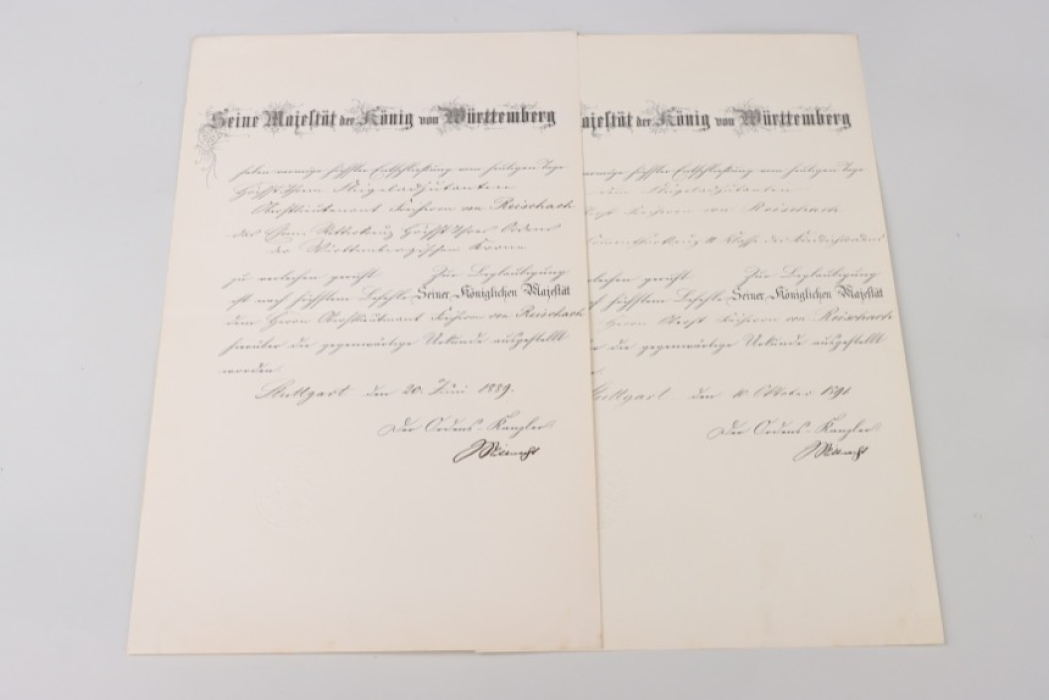 Seine Majestät der König von Württemberg
haben vermöge höchster Entschließung vom heutigen Tage
Höchst Ihrem Flügeladjutanten
Oberstlieutenant Freiherrn von Reischach
das Ehren Ritterkreuz Höchst Ihres Ordens
der Württembergischen Krone
zu verleihen geruht Zur Beglaubigung
ist nach höchstem Befehle Seiner Königlichen Majestät
dem Herrn Oberstlieutenant Freiherrn von Reischach
hierüber die gegenwärtige Urkunde ausgestellt
worden.
Stuttgart den 20. Juni 1889.
Der Ordens-Kanzler:
ajestät der König von Württemberg
vermöge höchster Entschließung vom heutigen Tage
Flügeladjutanten
Freiherrn von Reischach
II Klasse des Friedrichsordens
verleihen geruht Zur Beglaubigung
höchstem Befehle Seiner Königlichen Majestät
Herrn Oberst Freiherrn von Reischach
die gegenwärtige Urkunde ausgestellt
Stuttgart den Oktober
Der Ordens-Kanzler: